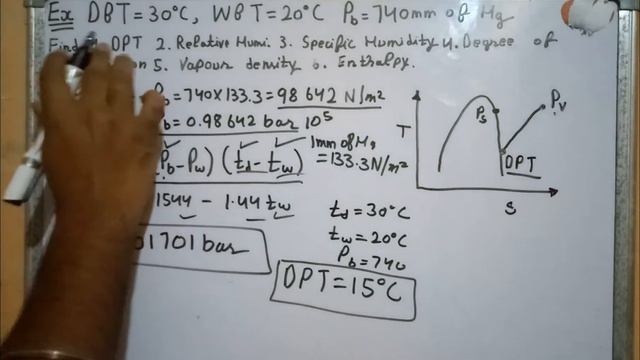 Ex DBT = 30°C, WBT = 20°C Pb = 740mm of Hg
Find DPT 2. Relative Humi. 3. Specific Humidity 4. Degree of
on 5. Vapour density 6. Enthalpy.
Pb = 740 x 133.3 = 98 642 N/m²
b = 0.98642 bar 10⁵
Pb - Pw) (td - tw)
1mm of Hg
= 133.3 N/m²
1544 - 1.44 tw
01701 bar
td = 30°C
tw = 20°C
Pb = 740
DPT = 15°C
T
Ps
Pv
DPT
S